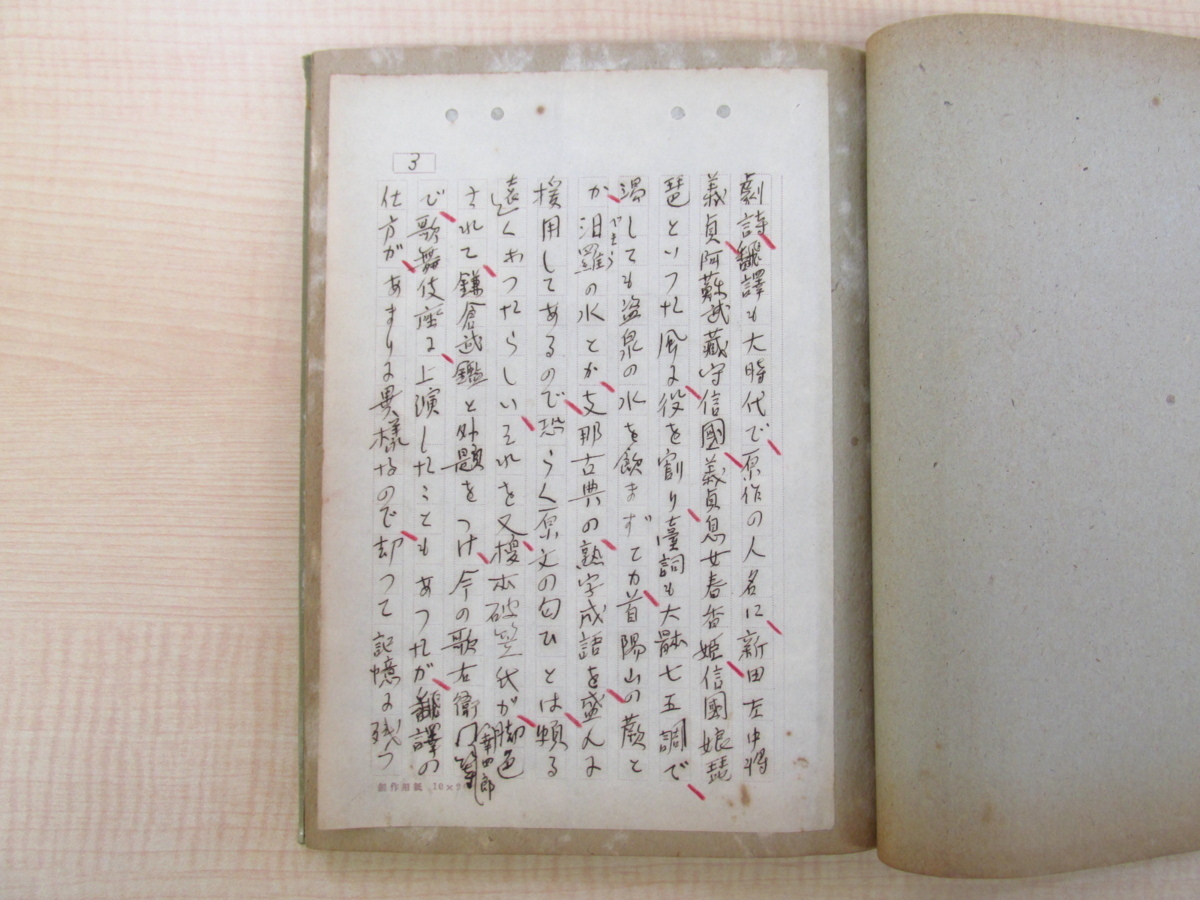 3
劇詩飜譯も大時代で原作の人名に新田左中将
義貞阿蘇武蔵守信國義貞息女春香姫信國娘琵
琶といつた風に役を割り臺詞も大體七五調で
渇しても盗泉の水を飲まずとか首陽山の蕨と
か汨羅の水とか支那古典の熟字成語を盛んに
べきら
援用してあるので恐らく原文の匂ひとは頗る
遠くわつたらしいそれを又榎本破笠氏が脚色
されて鎌倉武鑑と外題をつけ今の歌右衛門
幸四郎
で歌舞伎座に上演したこともあつたが飜譯の
仕方があまりに異様なので却つて記憶に残つ
創作用紙 10×